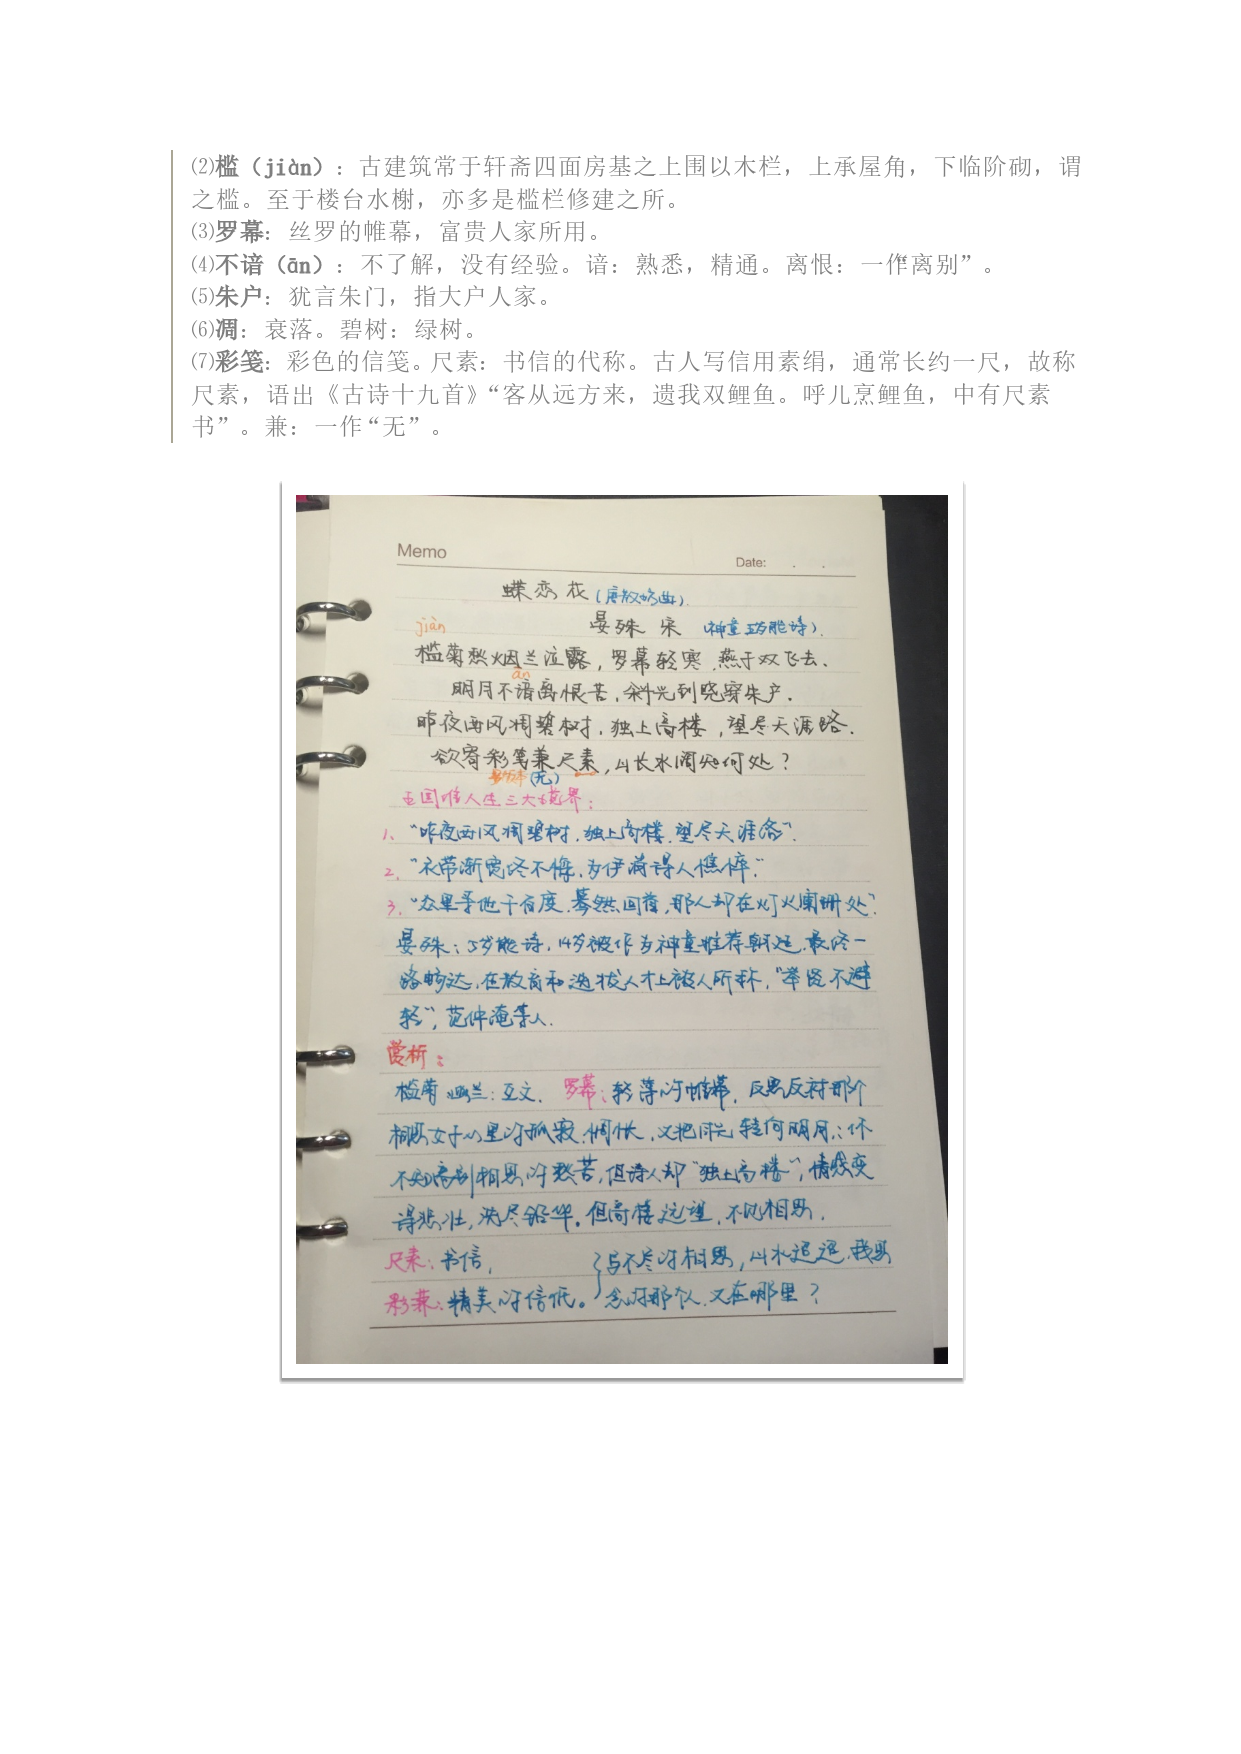 ⑵槛（jiàn）：古建筑常于轩斋四面房基之上围以木栏，上承屋角，下临阶砌，谓
之槛。至于楼台水榭，亦多是槛栏修建之所。
⑶罗幕：丝罗的帷幕，富贵人家所用。
⑷不谙（ān）：不了解，没有经验。谙：熟悉，精通。离恨：一作“离别”。
⑸朱户：犹言朱门，指大户人家。
⑹凋：衰落。碧树：绿树。
⑺彩笺：彩色的信笺。尺素：书信的代称。古人写信用素绢，通常长约一尺，故称
尺素，语出《古诗十九首》“客从远方来，遗我双鲤鱼。呼儿烹鲤鱼，中有尺素
书”。兼：一作“无”。
Memo
Date: . .
蝶恋花（唐教坊曲）.
晏殊 宋 （神童5岁能诗）.
jiàn
槛菊愁烟兰泣露，罗幕轻寒.燕子双飞去.
ān
明月不谙离恨苦，斜光到晓穿朱户.
昨夜西风凋碧树.独上高楼，望尽天涯路.
欲寄彩笺兼尺素，山长水阔知何处？
（无）
王国维人生三大境界：
1、“昨夜西风凋碧树.独上高楼.望尽天涯路”.
2、“衣带渐宽终不悔.为伊消得人憔悴.”
3、“众里寻他千百度.蓦然回首，那人却在灯火阑珊处”.
晏殊：5岁能诗，14岁被作为神童推荐朝廷.最终一
路畅达，在教育和选拔人才上被人所称，“举贤不避
轻”，范仲淹等人.
赏析：
槛菊 幽兰：互文. 罗幕：轻薄的帷幕，反思反衬那个
相思女子心里的孤寂.惆怅，又把目光转向明月：怀
不知离别相思的愁苦，但诗人却“独上高楼”，情感变
得悲壮，洗尽铅华。但高楼远望，不见相思.
尺素：书信， 写不尽的相思，山水迢迢.我思
彩兼：精美的信纸。 念的那个人.又在哪里？